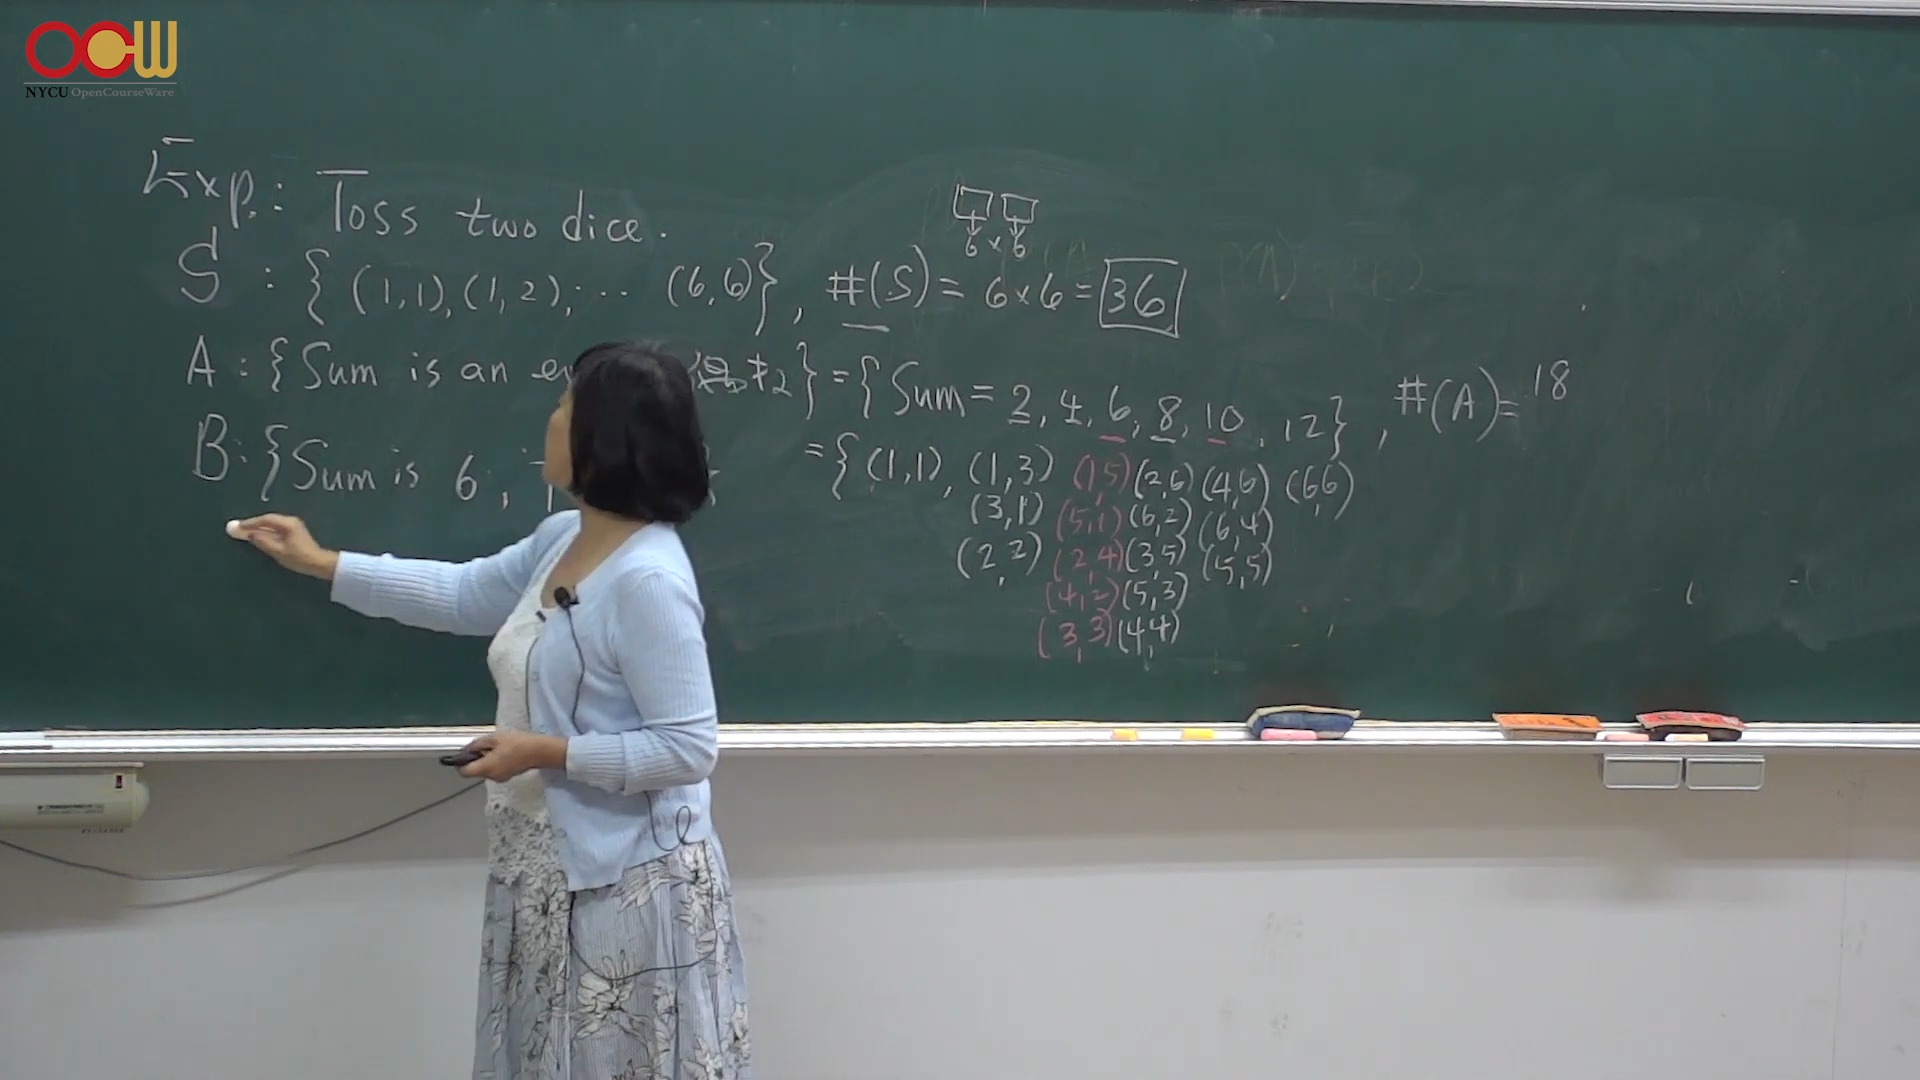 OCW
NYCU OpenCourseWare
Exp.: Toss two dice.
6 × 6
S : { (1,1), (1,2), ... (6,6) }, #(S) = 6×6 = 36
A : { Sum is an } = { Sum = 2, 4, 6, 8, 10, 12 }, #(A) = 18
B : { Sum is 6,
= { (1,1), (1,3) (1,5) (2,6) (4,6) (6,6)
(3,1) (5,1) (6,2) (6,4)
(2,2) (2,4) (3,5) (5,5)
(4,2) (5,3)
(3,3) (4,4)